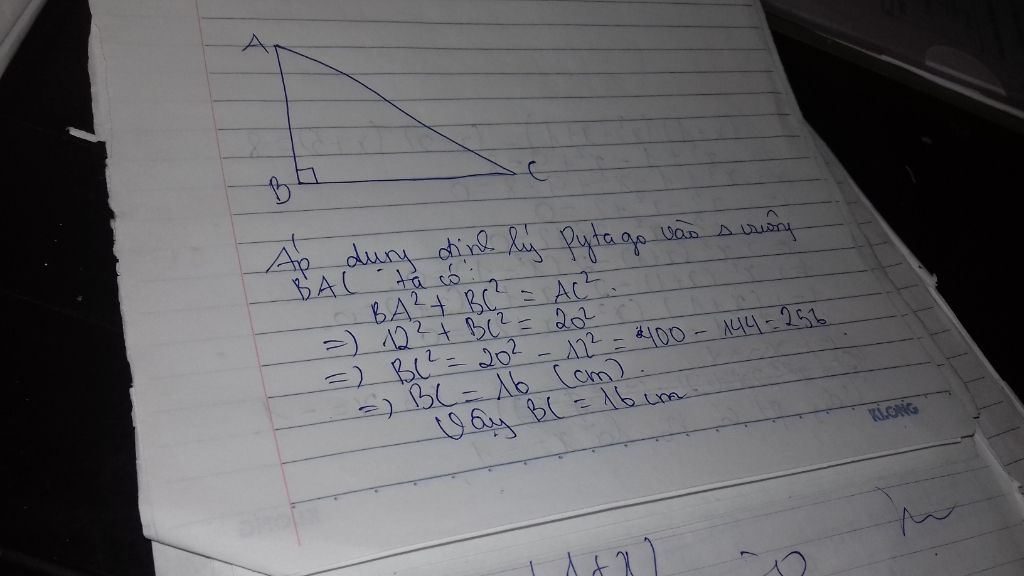 A
B
C
Áp dụng định lý Pytago vào Δ vuông
BAC ta có:
BA² + BC² = AC².
=) 12² + BC² = 20²
=) BC² = 20² - 12² = 400 - 144 = 256
=) BC = 16 (cm).
Vậy BC = 16 cm
KLONG